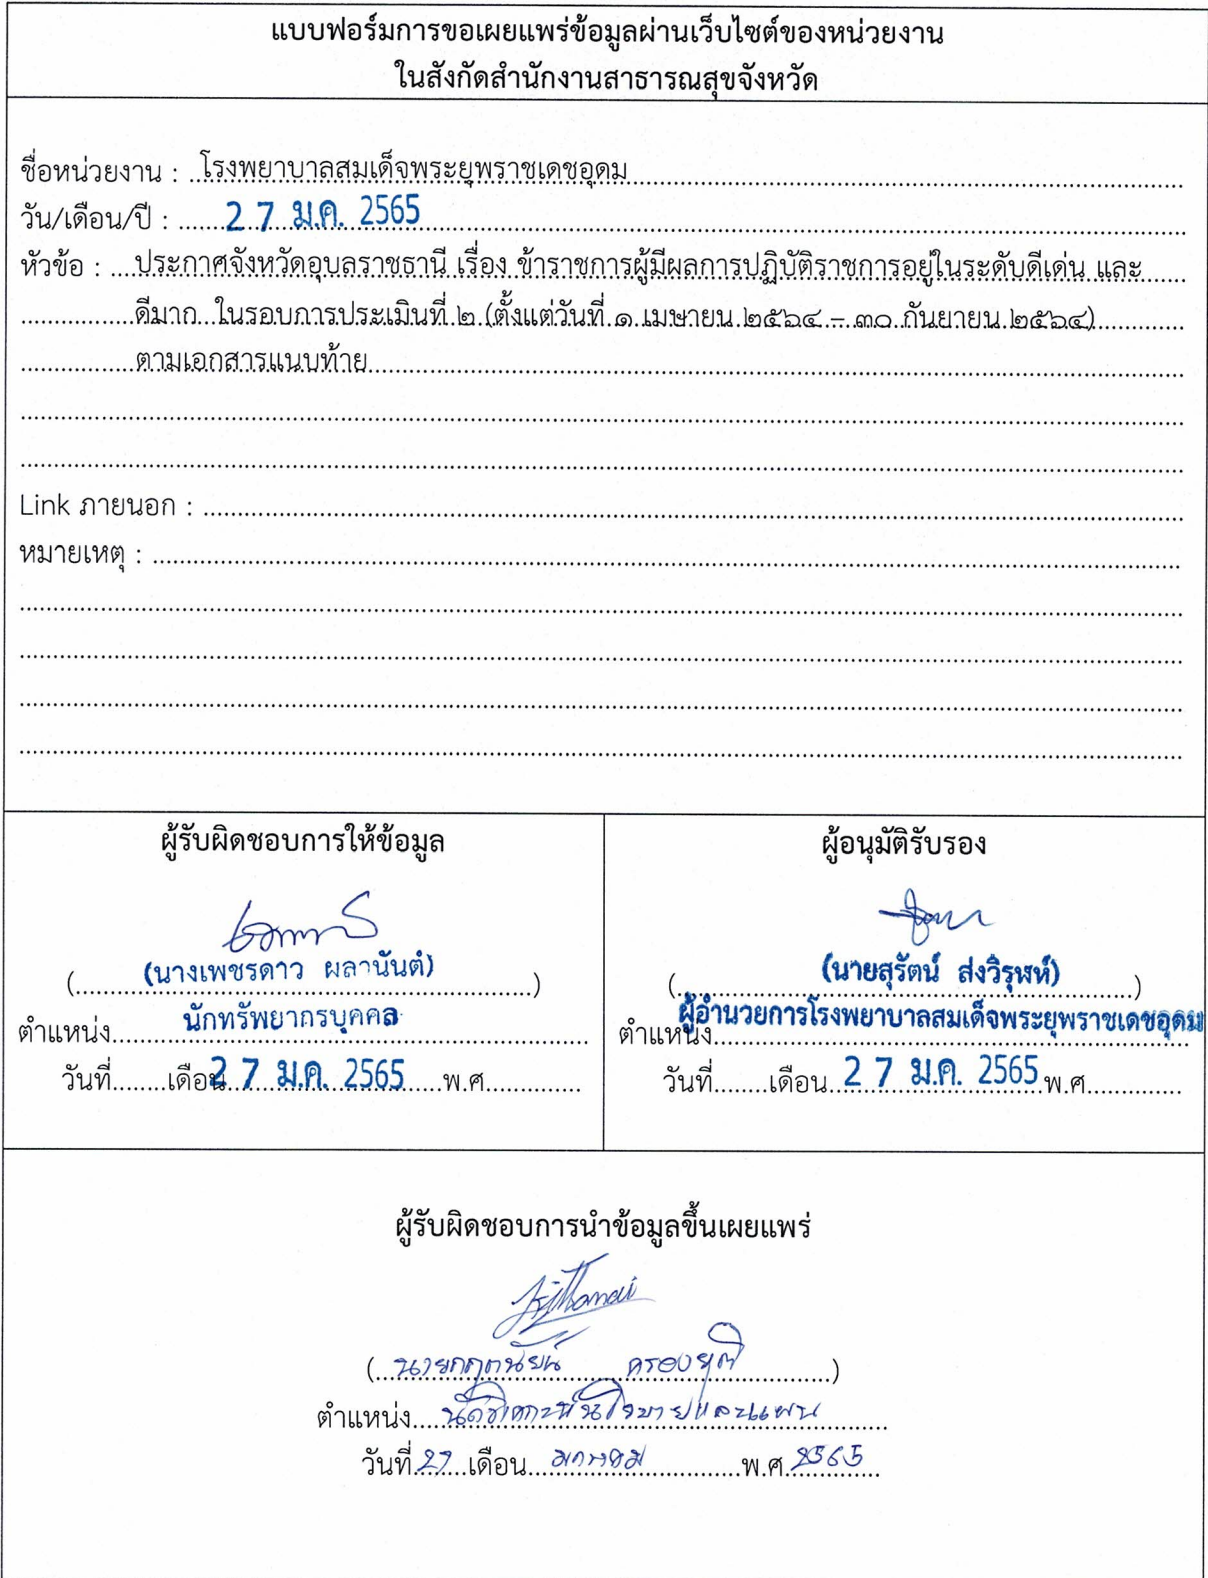 แบบฟอร์มการขอเผยแพร่ข้อมูลผ่านเว็บไซต์ของหน่วยงาน
ในสังกัดสำนักงานสาธารณสุขจังหวัด
ชื่อหน่วยงาน : โรงพยาบาลสมเด็จพระยุพราชเดชอุดม
วัน/เดือน/ปี : 27 ม.ค. 2565
หัวข้อ : ประกาศจังหวัดอุบลราชธานี เรื่อง ข้าราชการผู้มีผลการปฏิบัติราชการอยู่ในระดับดีเด่น และ
ดีมาก ในรอบการประเมินที่ ๒ (ตั้งแต่วันที่ ๑ เมษายน ๒๕๖๔ – ๓๐ กันยายน ๒๕๖๔)
ตามเอกสารแนบท้าย
Link ภายนอก :
หมายเหตุ :
ผู้รับผิดชอบการให้ข้อมูล
(นางเพชรดาว ผลานันต์)
ตำแหน่ง นักทรัพยากรบุคคล
วันที่ เดือน 27 ม.ค. 2565 พ.ศ.
ผู้อนุมัติรับรอง
(นายสุรัตน์ ส่งวิรุฬห์)
ตำแหน่ง ผู้อำนวยการโรงพยาบาลสมเด็จพระยุพราชเดชอุดม
วันที่ เดือน 27 ม.ค. 2565 พ.ศ.
ผู้รับผิดชอบการนำข้อมูลขึ้นเผยแพร่
( ครองยุติ )
ตำแหน่ง นักวิเคราะห์นโยบายและแผน
วันที่ 27 เดือน มกราคม พ.ศ. 2565